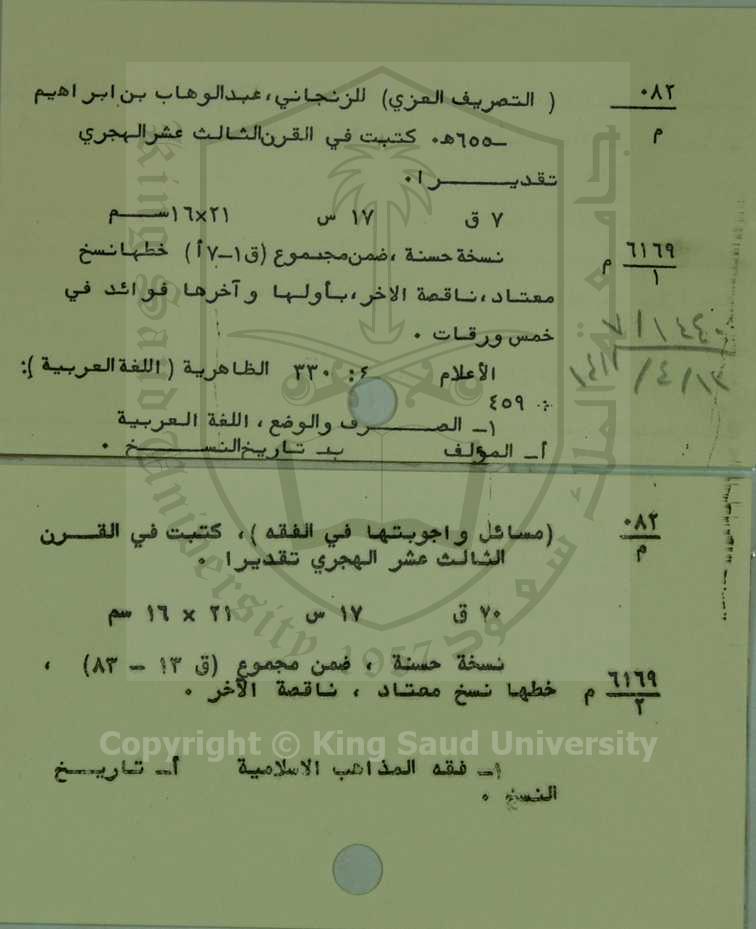 ٠٨٢
م
( التصريف العزي) للزنجاني، عبدالوهاب بن ابراهيم
ـ٦٥٥هـ٠ كتبت في القرن الثالث عشر الهجري
تقديـــرا٠
٧ ق ١٧ س ٢١×١٦ســم
٦١٦٩ م
١
نسخة حسنة ،ضمن مجموع (ق١-٧أ) خطها نسخ
معتاد، ناقصة الاخر، بأولها وآخرها فوائد في
خمس ورقات ٠
الأعلام ٤: ٣٣٠ الظاهرية (اللغة العربية ):
٤٥٩
١- الصــــرف والوضع، اللغة العربية
أ- المؤلف ب- تاريخ النســـخ ٠
٠٨٢
م
(مسائل واجوبتها في الفقه )، كتبت في القــرن
الثالث عشر الهجري تقديرا ٠
٧٠ ق ١٧ س ٢١ × ١٦ سم
نسخة حسنة ، ضمن مجموع (ق ١٣ - ٨٣) ،
٦١٦٩ م
٢
خطها نسخ معتاد ، ناقصة الآخر ٠
١- فقه المذاهب الاسلامية أ- تاريــخ
النسخ ٠
جامعة الملك سعود
King Saud University
1957
Copyright © King Saud University